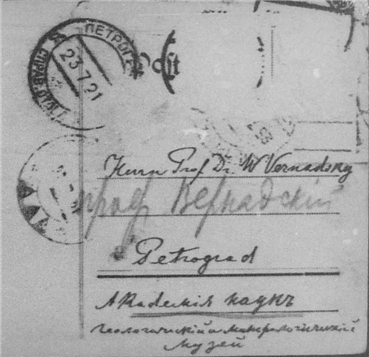 ПЕТРОГРАД
23.7.21
Post
Herrn Prof. Dr. W Vernadsky
проф Вернадскій
Petrograd
Академія наукъ
геологическій и минералогическій
музей